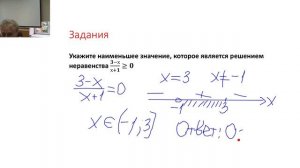 Задания
Укажите наименьшее значение, которое является решением
неравенства (3-x)/(x+1) ≥ 0
(3-x)/(x+1) = 0
x=3 x≠-1
- + -
-1 3 x
x∈(-1, 3]
Ответ: 0